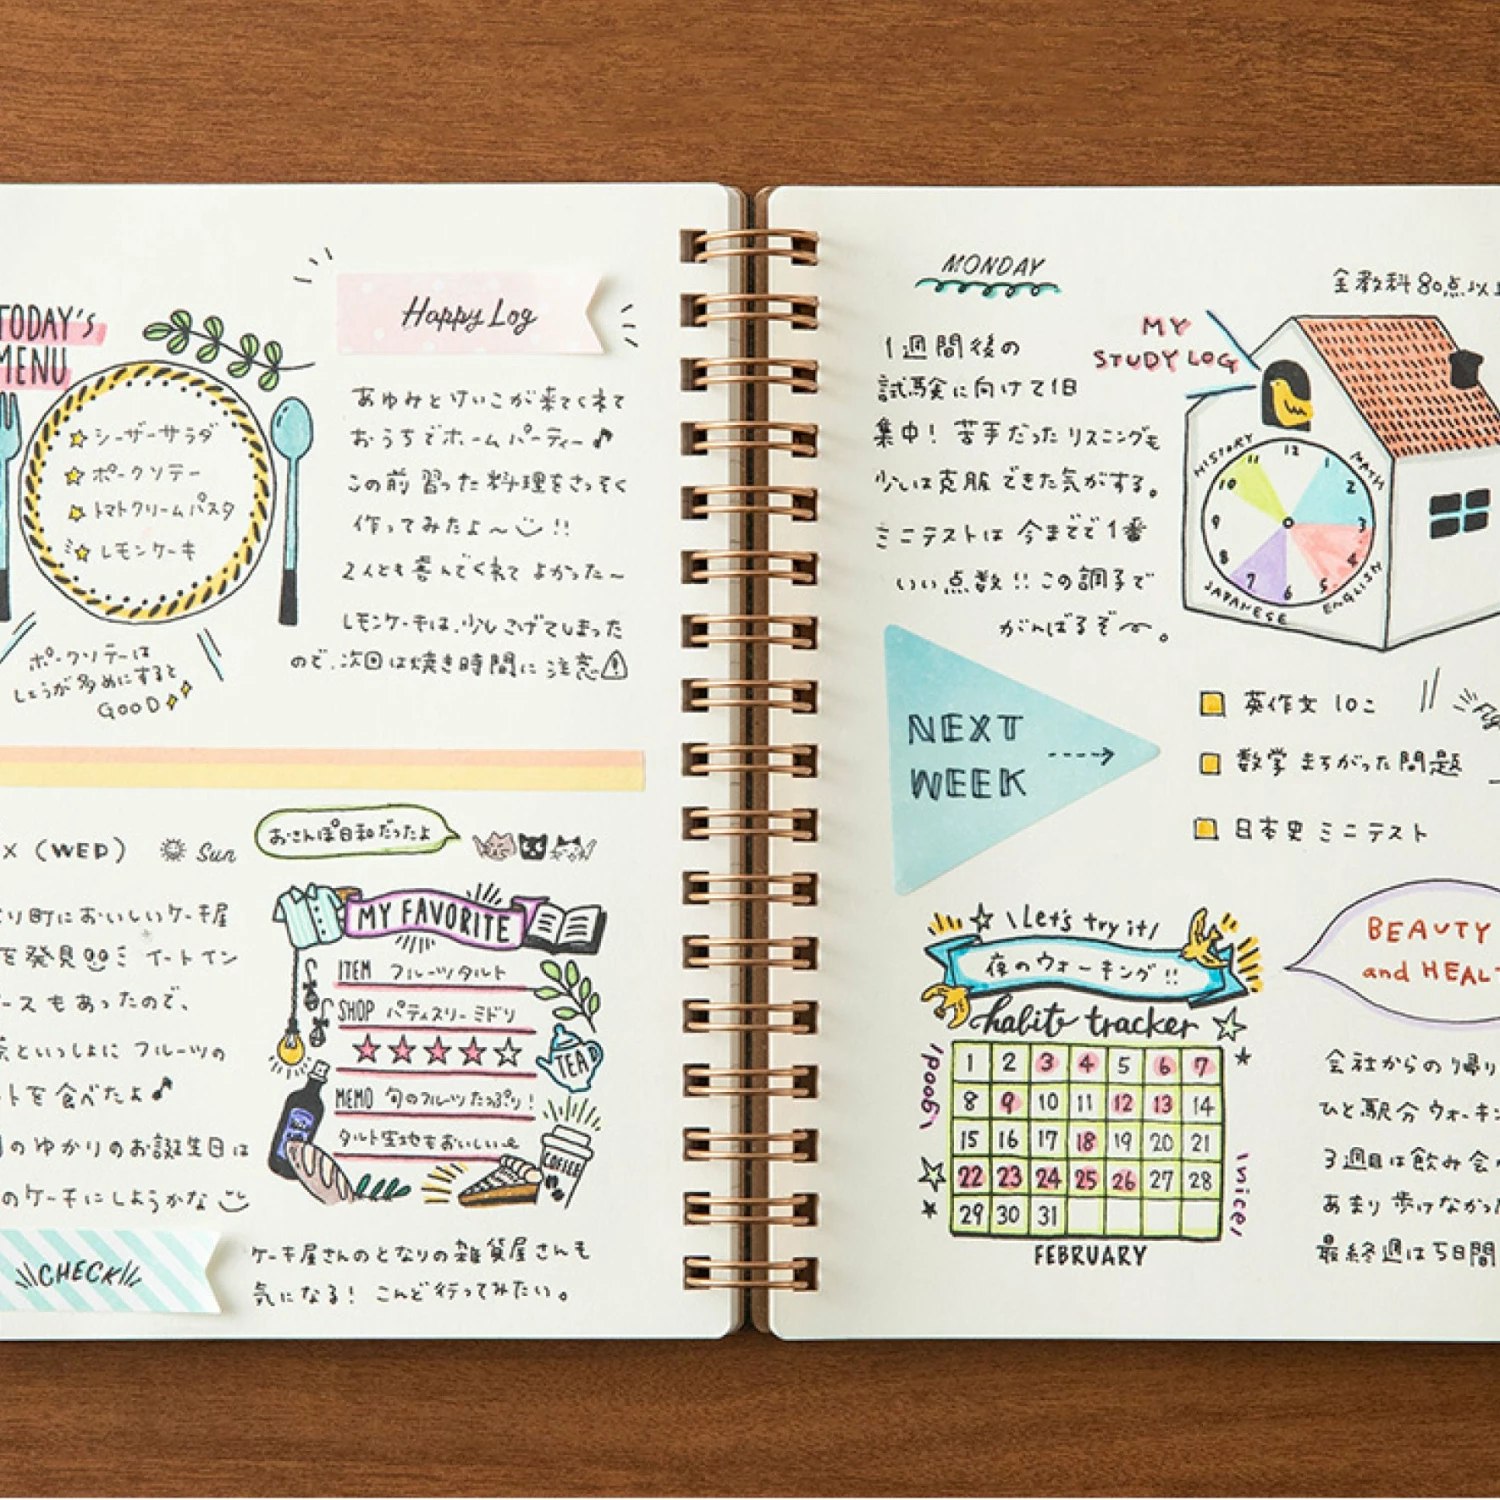 TODAY's
MENU
シーザーサラダ
ポークソテー
トマトクリームパスタ
レモンケーキ
ポークソテーは
しょうが多めにすると
GOOD
Happy Log
あゆみとけいこが来てくれて
おうちでホームパーティー♪
この前習った料理をさっそく
作ってみたよ〜!!
2人とも喜んでくれてよかった〜
レモンケーキは、少しこげてしまった
ので、次回は焼き時間に注意
(WED) Sun
おさんぽ日和だったよ
り町においしいケーキ屋
を発見 イートイン
ースもあったので、
といっしょにフルーツの
トを食べたよ♪
のゆかりのお誕生日は
のケーキにしようかな
CHECK
MY FAVORITE
ITEM フルーツタルト
SHOP パティスリーミドリ
★★★★☆
MEMO 旬のフルーツたっぷり!
タルト生地もおいしい
TEA
COFFEE
ケーキ屋さんのとなりの雑貨屋さんも
気になる! こんど行ってみたい。
MONDAY
1週間後の
試験に向けて1日
集中! 苦手だったリスニングも
少しは克服できた気がする。
ミニテストは今までで1番
いい点数!! この調子で
がんばるぞ〜。
全教科80点以上
MY
STUDY LOG
HISTORY
MATH
JAPANESE
ENGLISH
12 1 2 3 4 5 6 7 8 9 10 11
NEXT
WEEK
英作文 10こ
数学 まちがった問題
日本史 ミニテスト
Let's try it!
夜のウォーキング!!
habit tracker
good!
1 2 3 4 5 6 7
8 9 10 11 12 13 14
15 16 17 18 19 20 21
22 23 24 25 26 27 28
29 30 31
nice!
FEBRUARY
BEAUTY
and HEALT
会社からの帰り
ひと駅分ウォーキ
3週目は飲み会
あまり歩けなかっ
最終週は5日間